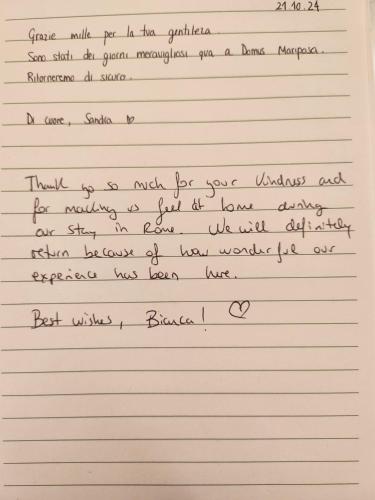 21.10.24
Grazie mille per la tua gentileza.
Sono stati dei giorni meravigliosi qua a Domus Mariposa.
Ritorneremo di sicuro.
Di cuore, Sandra ♡
Thank yo so much for your kindness and
for making us feel at home during
our stay in Rome. We will definitely
return because of how wonderful our
experience has been here.
Best wishes, Bianca! ♡